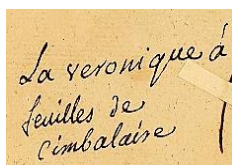 La veronique à
feuilles de
Cimbalaire